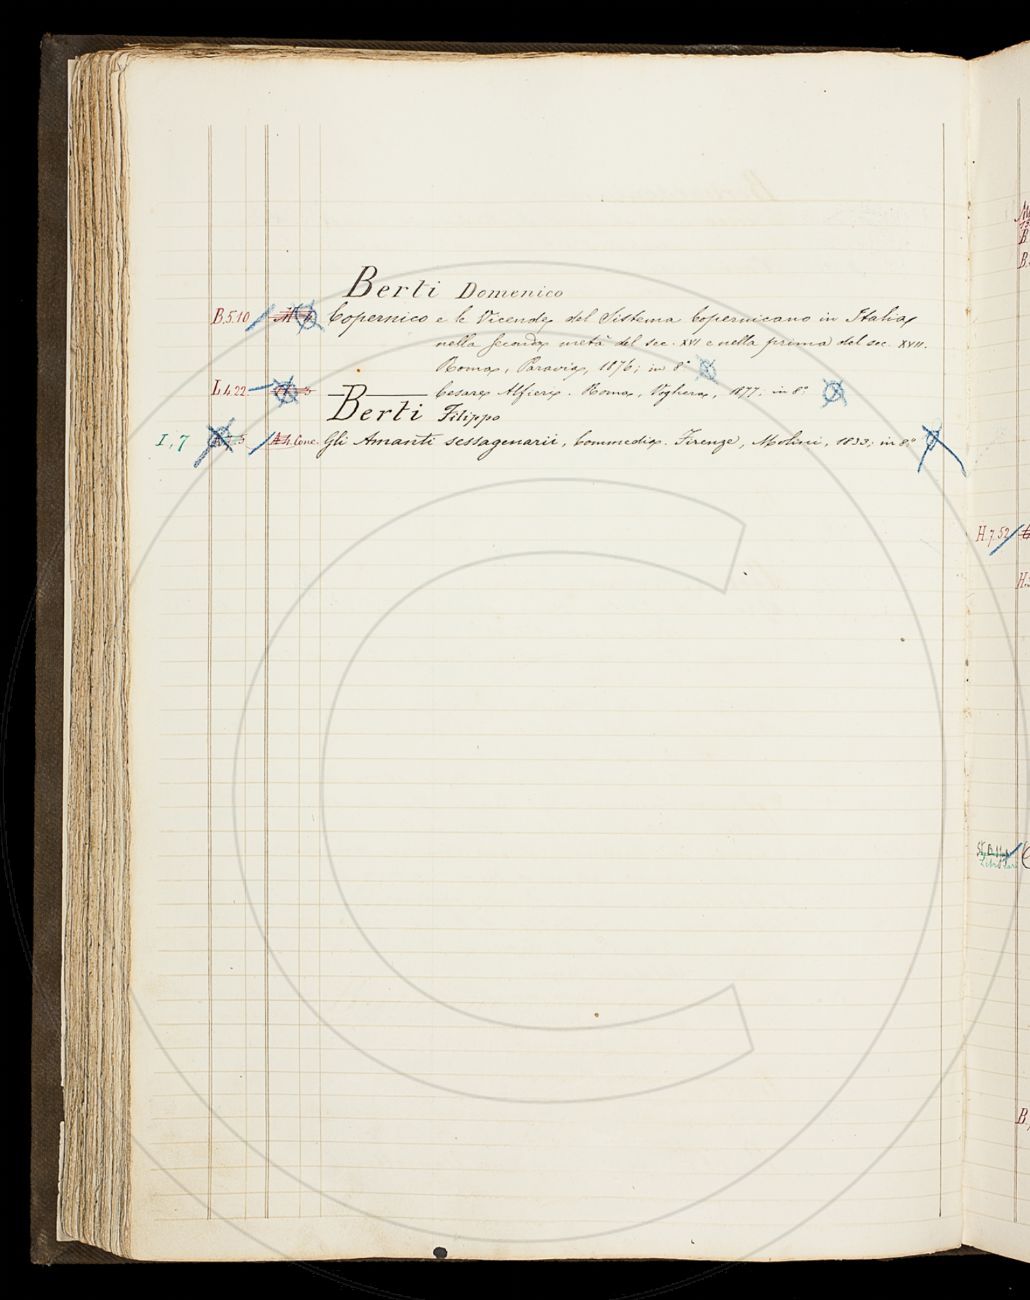 Berti Domenico
B.5.10 Copernico e le Vicende del Sistema Copernicano in Italia,
nella seconda metà del sec. XVI e nella prima del sec. XVII.
Roma, Paravia, 1876; in 8°
L.4.22. Cesare Alfieri. Roma, Voghera, 1877; in 8°
Berti Filippo
I,7 A.4. Gli Amanti sessagenarii, Commedia. Firenze, Molini, 1833; in 8°
H.7.52